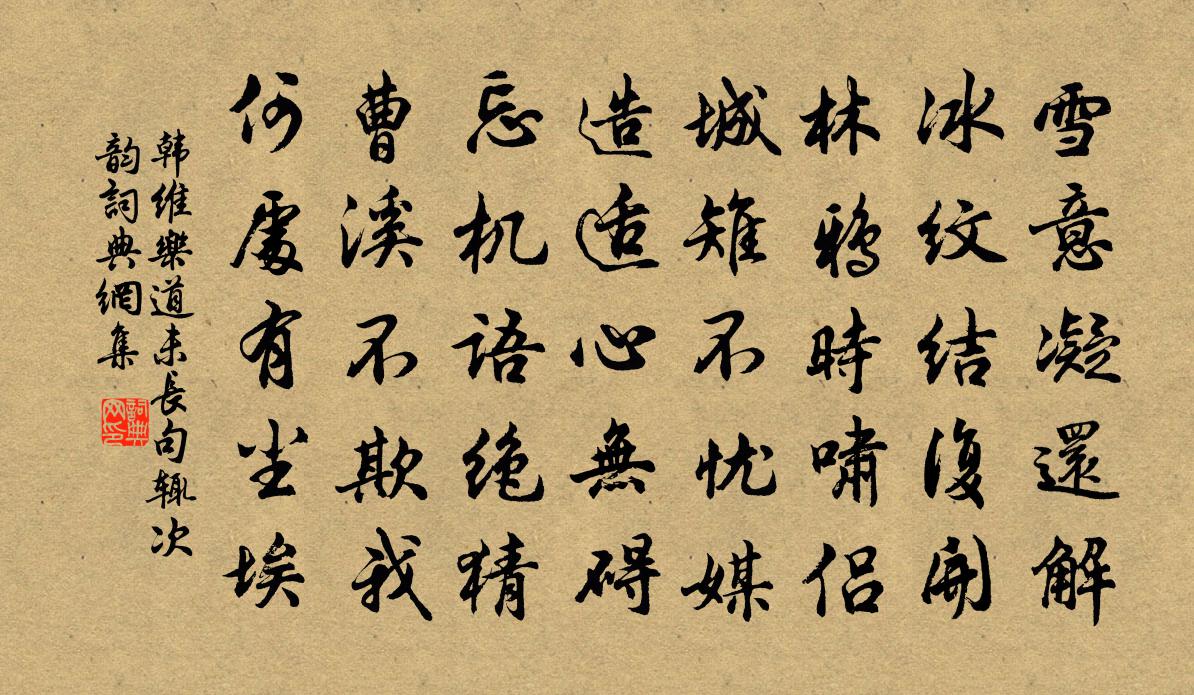 雪意凝還解
冰纹结復開
林鸦時啸侣
城雉不忧媒
造适心無碍
忘机语绝猜
曹溪不欺我
何處有尘埃
韩维樂道未長句辄次
韵詞典網集
詞典
网印